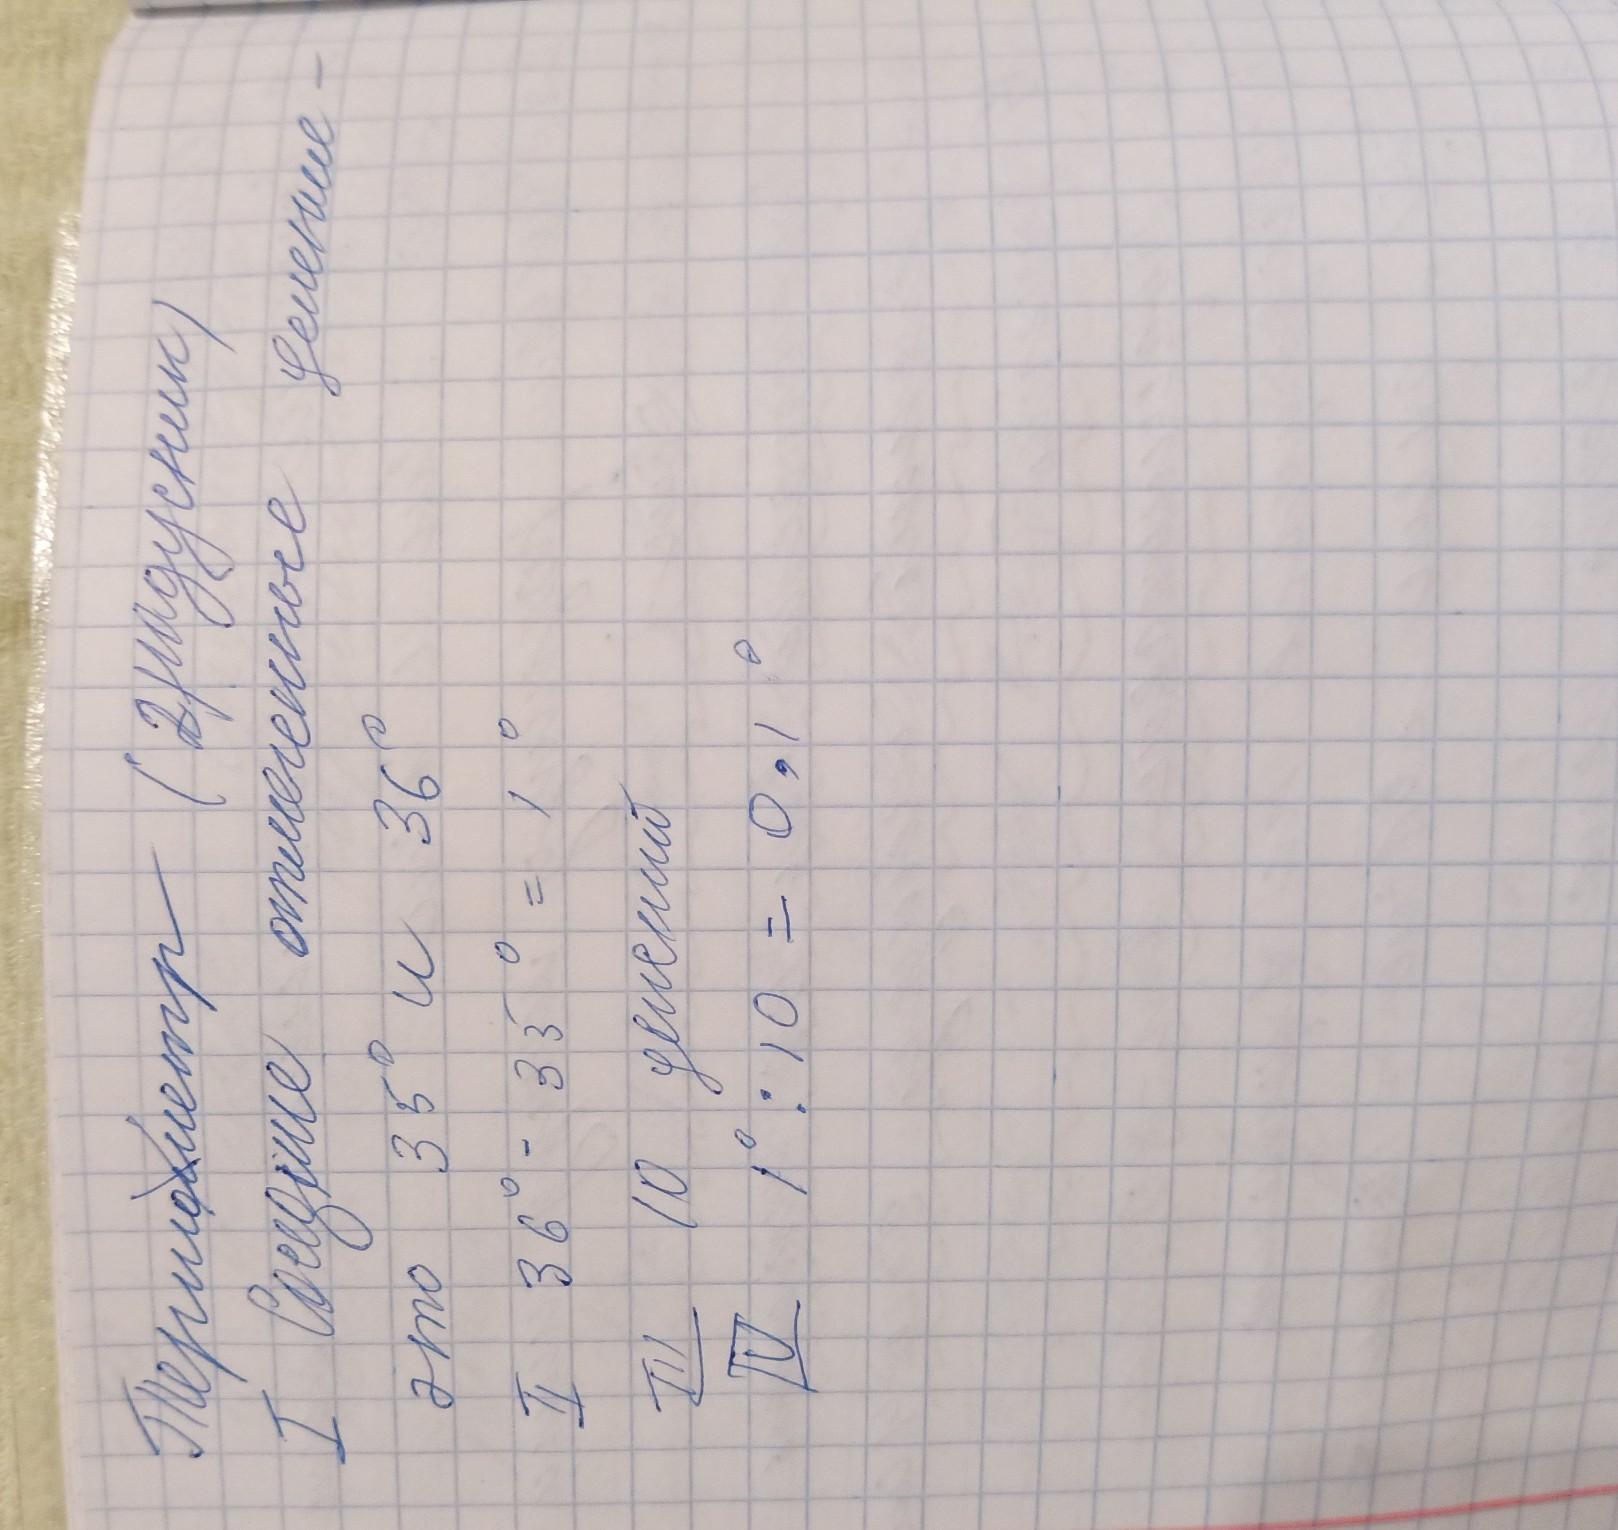 Термометр (градусник)
I Соседние отмеченные деление -
это 35° и 36°
II 36° - 35° = 1°
III 10 делений
IV 1° : 10 = 0,1°